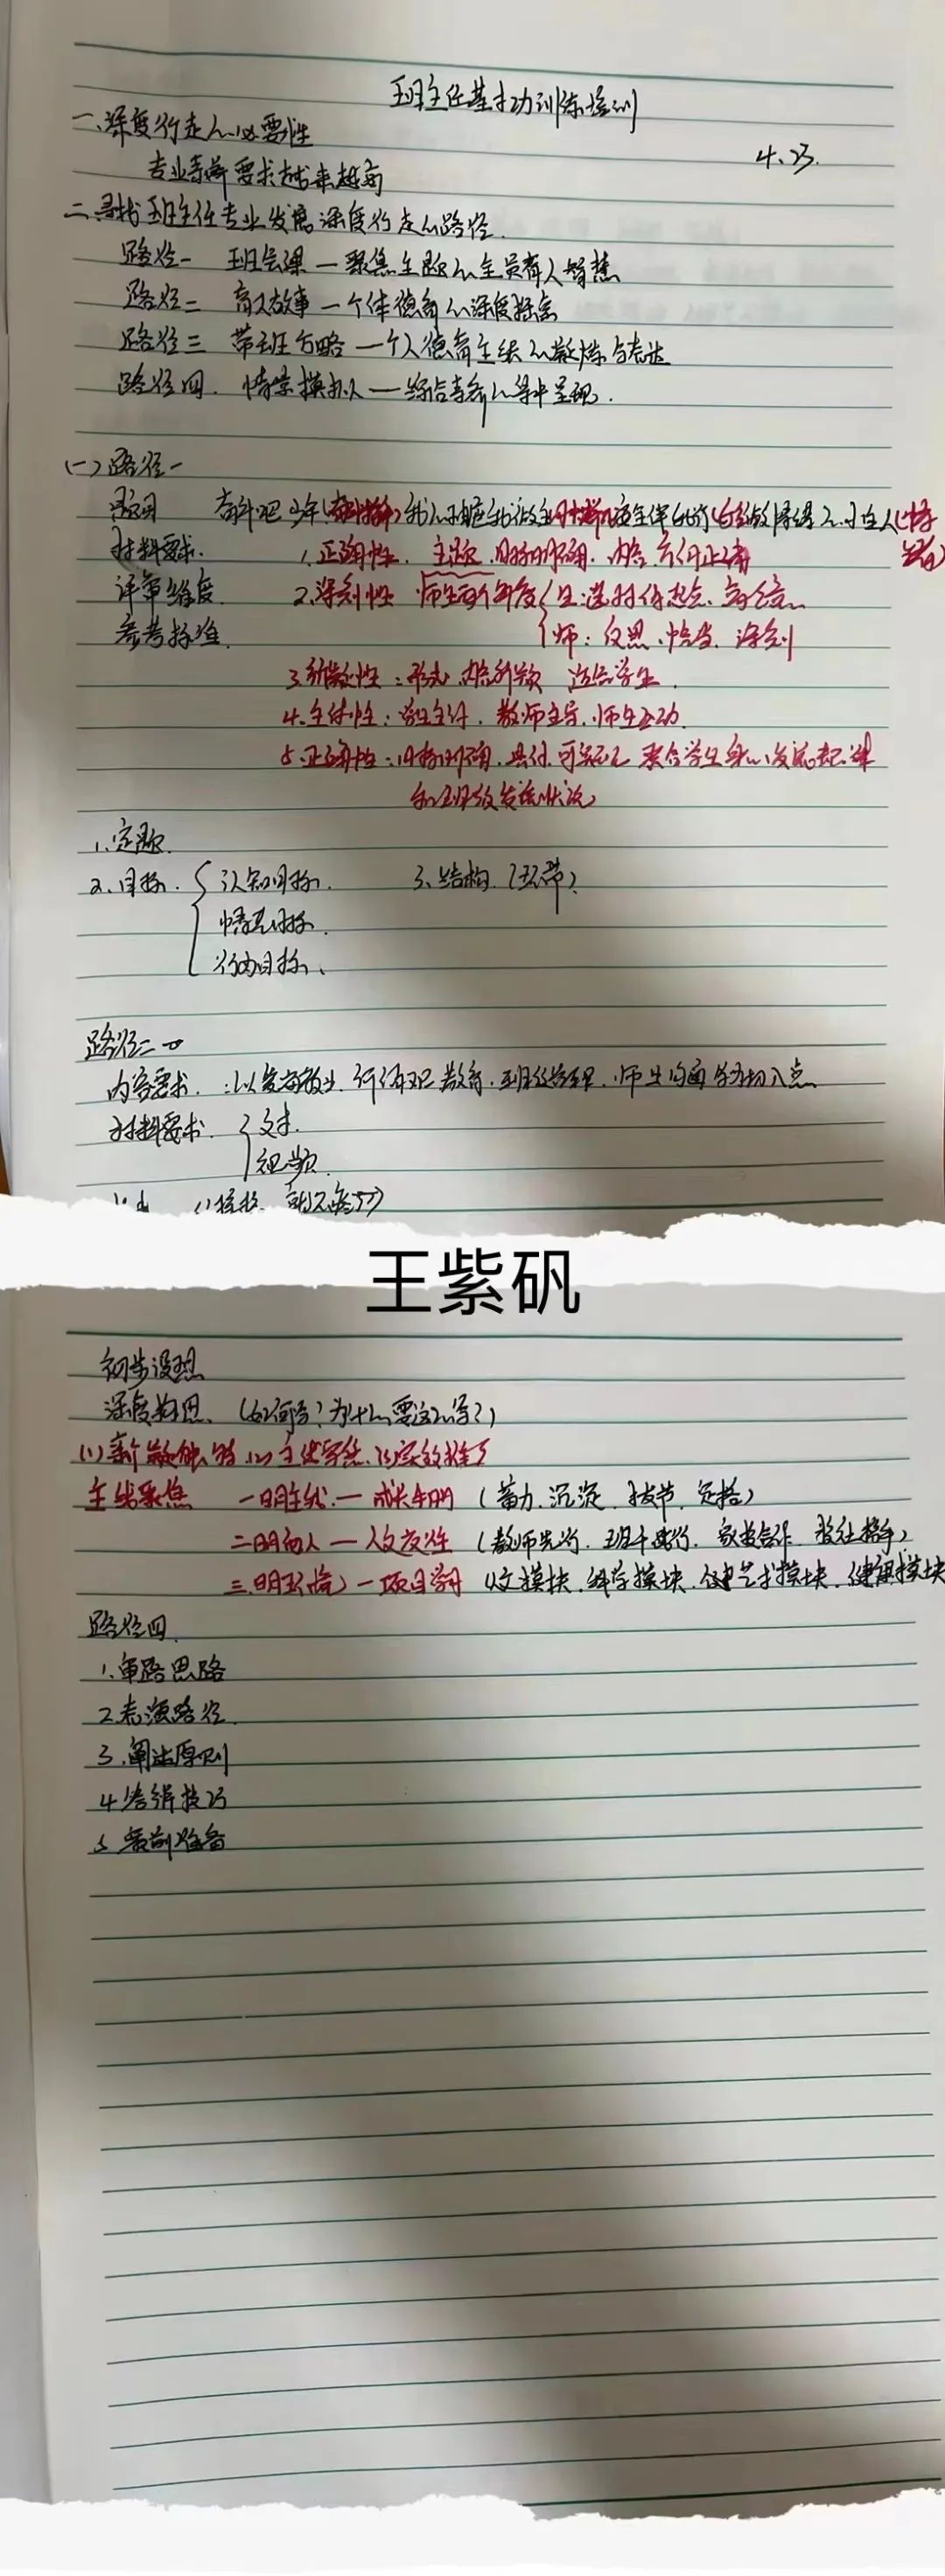 班主任基本功训练培训
一、深度行走的必要性
4.23.
专业素养要求越来越高
二、寻找班主任专业发展深度行走的路径.
路径一 班会课一聚焦主题的全员育人智慧
路径二 育人故事一个体德育的深度探究
路径三 带班方略一个人德育主张的凝炼与表达
路径四. 情景模拟一综合素养的集中呈现.
(一)路径一
题目
材料要求. 1.正确性. 主题、目标明确. 内容、方向正确
评审维度 2.深刻性 师生两个角度 生:
参考标准. 师:反思、恰当、深刻
3.新颖性:形式、内容新颖 适合学生.
4.主体性:学生主体、教师主导、师生互动.
5.正确性:目标明确、具体、可 学生身心发展规律
和班级发展状况
1.定题.
2.目标. 认知目标. 3.结构(环节)
情感目标.
行为目标、
路径二
内容要求. :以爱岗敬业 教育、班级管理、师生沟通 为切入点
材料要求. 文本.
视频.
王紫矾
初步设想
深度构思、(如何写?为什么要这么写?)
(1)新颖独特
主线聚焦 一明主线一成长 (蓄力、沉淀、拔节、
二明 人 (教师先行、班干 行、家校合作、 社携手)
三. 一项目 (人文模块、科学模块、 艺术模块、健康模块
路径四.
1.审题思路
2.表演路径.
3.阐述原则
4.答辩技巧
5.赛前准备